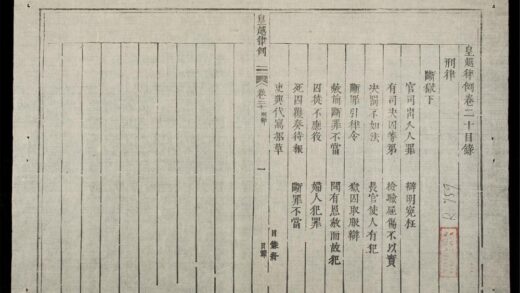 皇越律例卷二十目錄
刑律
斷獄下
官司出入人罪 辯明冤枉
有司決囚等第 檢驗屍傷不以實
決罰不如法 長官使人有犯
斷罪引律令 獄囚取服辯
赦前斷罪不當 聞有恩赦而故犯
囚徒不應役 婦人犯罪
死囚覆奏待報 斷罪不當
吏典代寫招草
皇越律例
卷二十
一
目錄